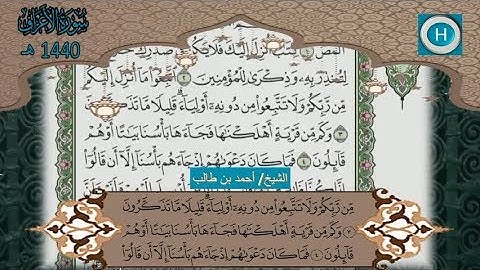 سُورَةُ الأَعْرَافِ
1440 هـ
H
الٓمٓصٓ ١ كِتَٰبٌ أُنزِلَ إِلَيْكَ فَلَا يَكُن فِي صَدْرِكَ حَرَجٌ
لِتُنذِرَ بِهِۦ وَذِكْرَىٰ لِلْمُؤْمِنِينَ ٢ ٱتَّبِعُوا۟ مَآ أُنزِلَ إِلَيْكُم
مِّن رَّبِّكُمْ وَلَا تَتَّبِعُوا۟ مِن دُونِهِۦٓ أَوْلِيَآءَ ۗ قَلِيلًا مَّا تَذَكَّرُونَ
٣ وَكَم مِّن قَرْيَةٍ أَهْلَكْنَٰهَا فَجَآءَهَا بَأْسُنَا بَيَٰتًا أَوْ هُمْ
قَآئِلُونَ ٤ فَمَا كَانَ دَعْوَىٰهُمْ إِذْ جَآءَهُم بَأْسُنَآ إِلَّآ أَن قَالُوٓا۟
الشيخ/ أحمد بن طالب
مِّن رَّبِّكُمْ وَلَا تَتَّبِعُوا۟ مِن دُونِهِۦٓ أَوْلِيَآءَ ۗ قَلِيلًا مَّا تَذَكَّرُونَ
٣ وَكَم مِّن قَرْيَةٍ أَهْلَكْنَٰهَا فَجَآءَهَا بَأْسُنَا بَيَٰتًا أَوْ هُمْ
قَآئِلُونَ ٤ فَمَا كَانَ دَعْوَىٰهُمْ إِذْ جَآءَهُم بَأْسُنَآ إِلَّآ أَن قَالُوٓا۟